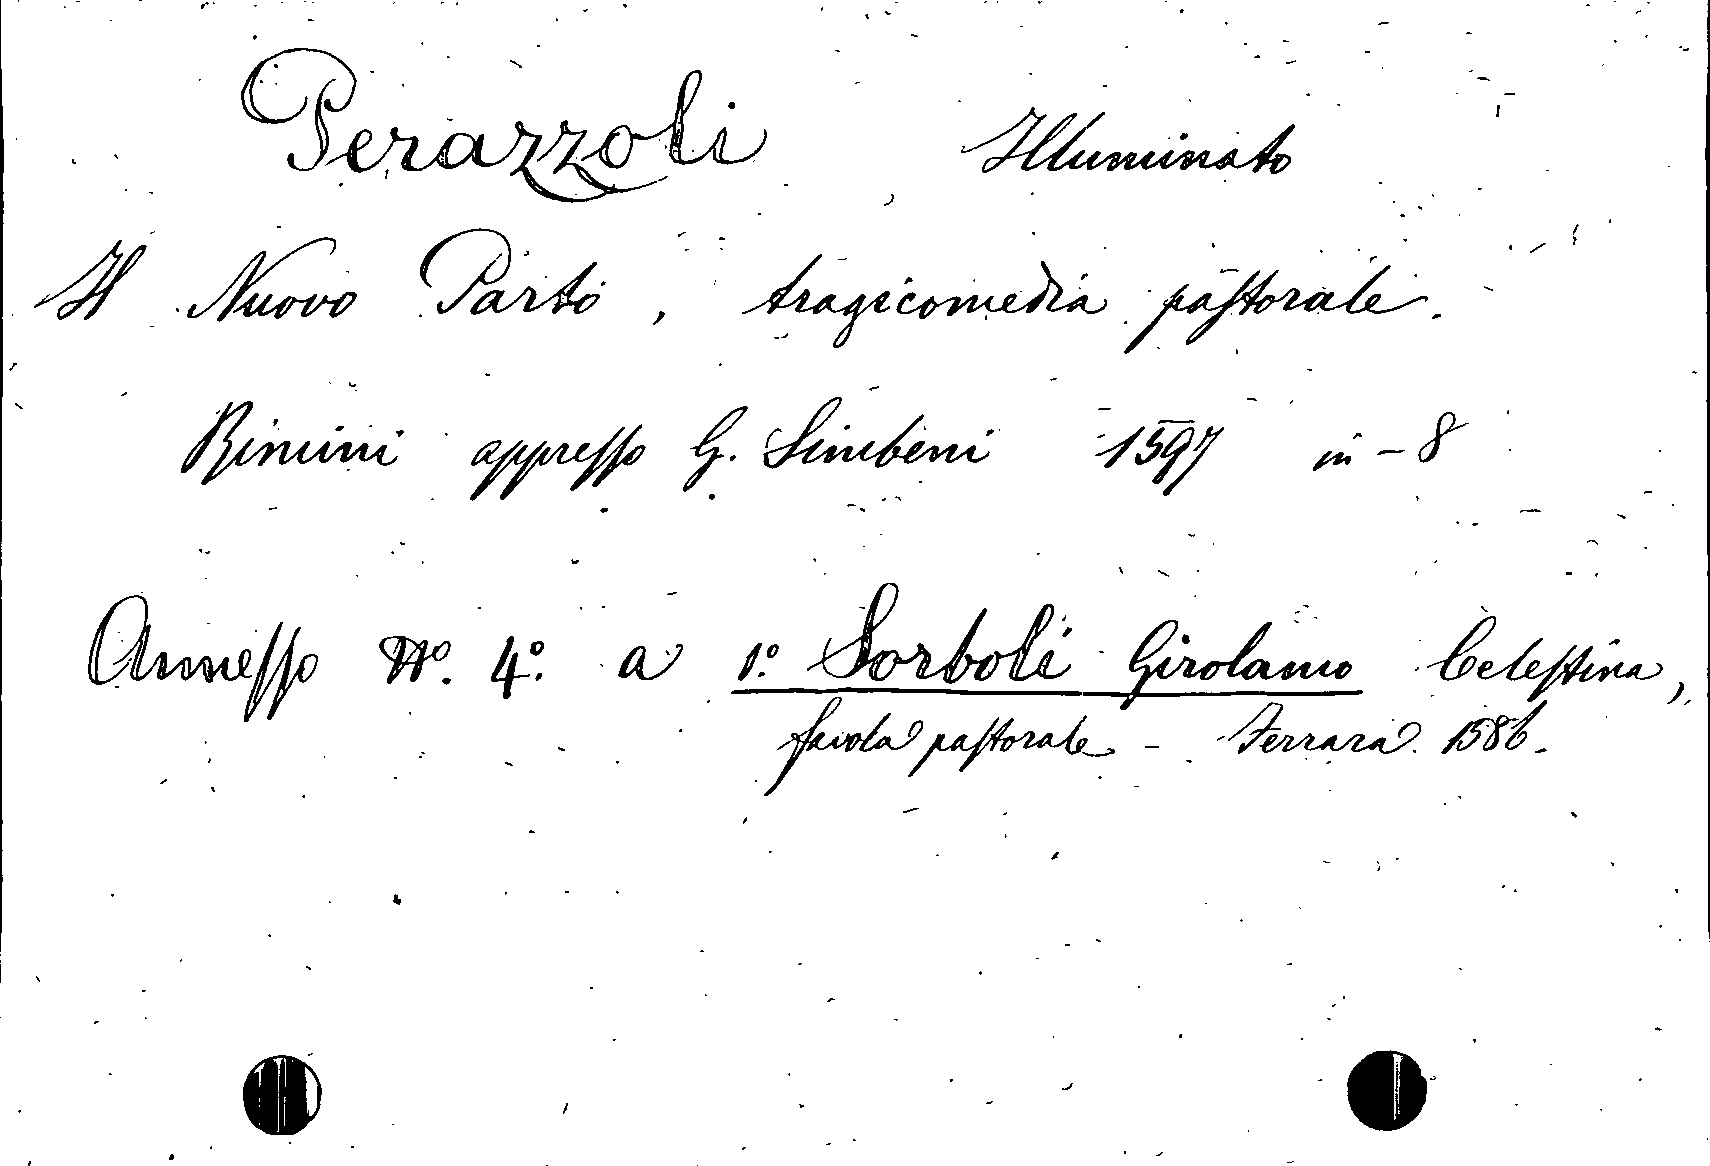 Perazzoli Illuminato
Il Nuovo Parto, tragicomedia pastorale.
Rimini appresso G. Simbeni 1597 in-8
Annesso Nº. 4º. a 1º. Sorboli Girolamo Celestina,
favola pastorale - Ferrara 1586.